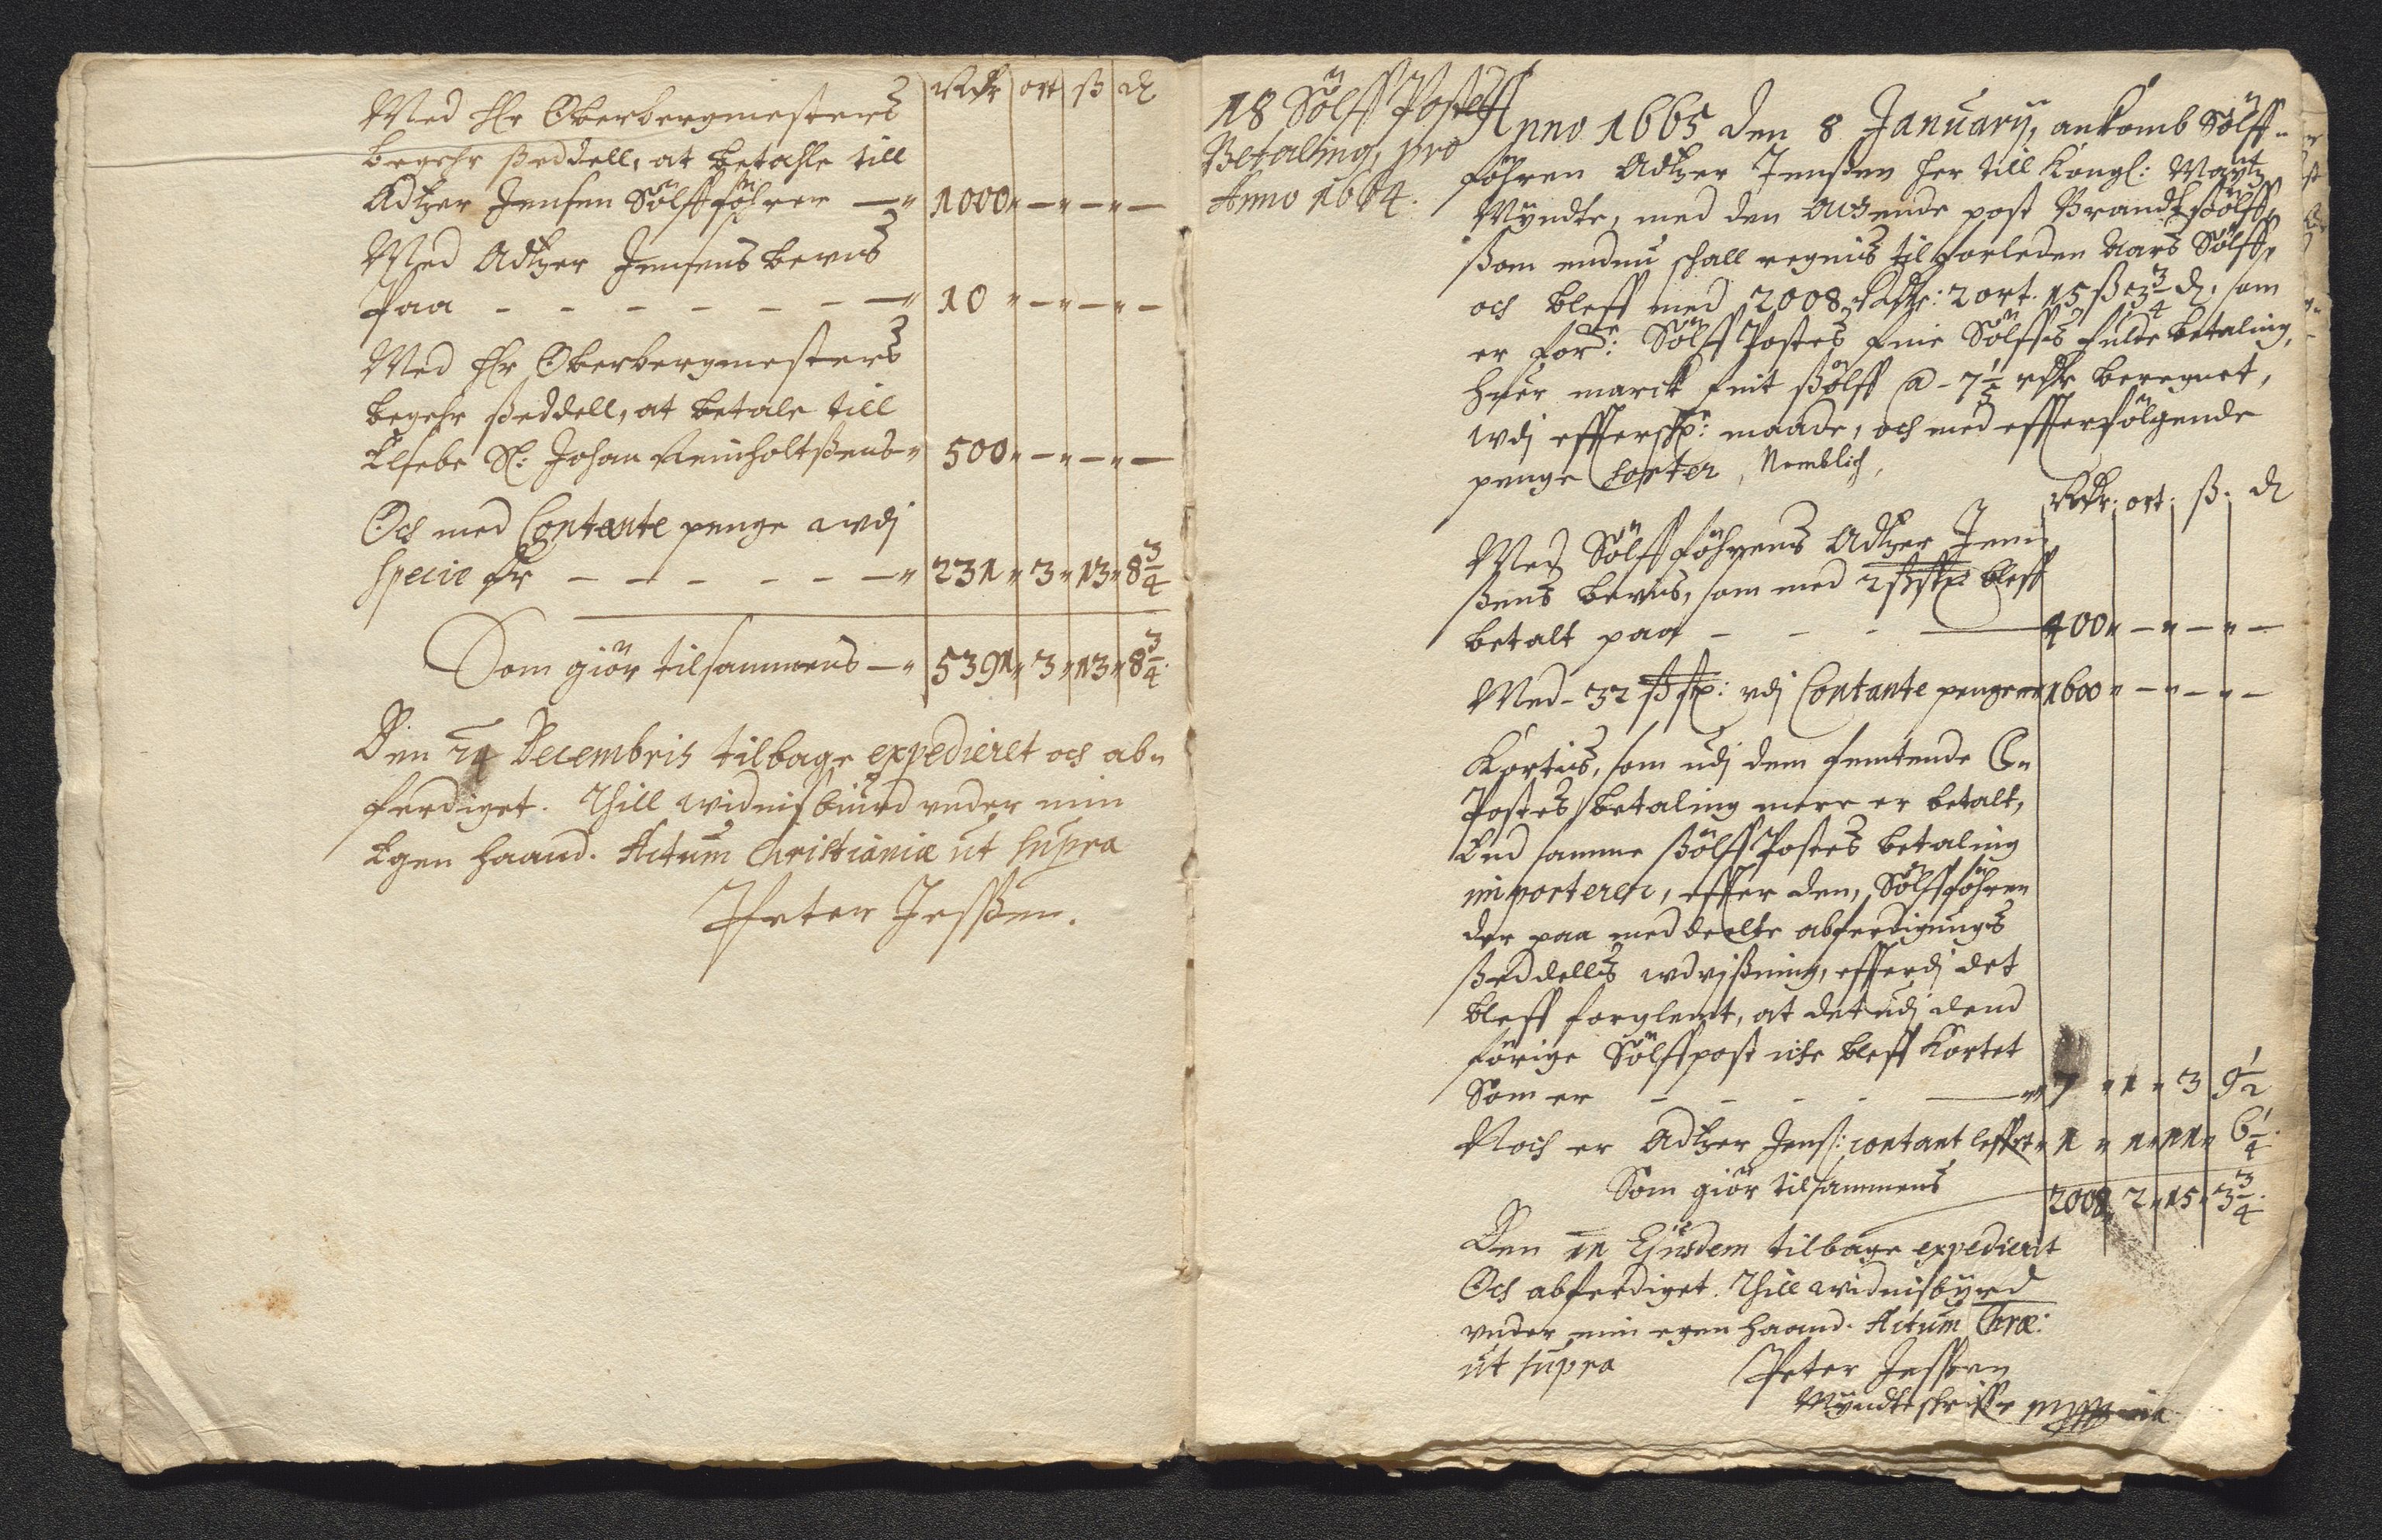 Rdr ort ß ₰
Med Hr Oberbergmesters
begehr ßeddell, at betahle till
Adtzer Jensen Sölffföhrer — 1000 „ — „ — „ —
Med Adtzer Jensens bewis
paa - - - - - - — 10 „ — „ — „ —
Med Hr Oberbergmesters
begehr ßeddell, at betale till
Elsebe Sl: Johan Reinholtßens 500 „ — „ — „ —
Och med Contante penge wdj
Specie Er - - - - - — 231 „ 3 „ 13 „ 8 3/4
Som giör tilsammens — 5391 „ 3 „ 13 „ 8 3/4
Den 24 Decembris tilbage expedieret och ab„
ferdiget. Thill widnisbiurd vnder min
Egen haand. Actum Christianiæ ut supra
Peter Jeßßen.
18 Sölff Postes
Betaling, pro
Anno 1664.
Anno 1665 den 8 January, ankomb Sölff„
föhren Adtzer Jenßen her till Kongl: Maytz
Myndte, med den attende post Brandtßölff,
ßom endnu schall regnis til forleden Aars Sölff,
och bleff med 2008 Rdr: 2 ort. 15 ß 3 3/4 ₰, som
er forde: Sölff Postes fine Sölffs fulde betaling,
huer marck fiit ßölff a - 7 1/2 rdr beregnet,
wdj effterschr: maade, och med effterfölgende
penge Sorter, Nemblich,
Rdr: ort: ß. ₰
Med Sölffföhrens Adtzer Jenn
ßens bewis, som med 2 bleff
betalt paa - - - — 400 „ — „ — „ —
Med - 32 : vdj Contante penge 1600 „ — „ — „ —
Kortis, som udj dem femtende S„
Postes betaling mere er betalt,
End samme ßölff Postes betaling
importerer, effter den, Sölffföhren
der paa meddeelte abferdigungs
ßeddells wdvißning, efferdj det
bleff forglemt, at det udj dend
förige Sölffpost iche bleff Kortet
Som er - - - - — 7 „ 1 „ 3 9 1/2
Noch er Adtzer Jens: contant leffret 1 „ 1 „ 11 „ 6 1/4
Som giör tilsammens 2008 „ 2 „ 15 „ 3 3/4
Den 11 Ejusdem tilbage expedierit
Och abferdiget. Thill widnisbyrd
vnder min egen haand. Actum Chræ:
ut supra Peter Jeßßen
Myndteschriffr